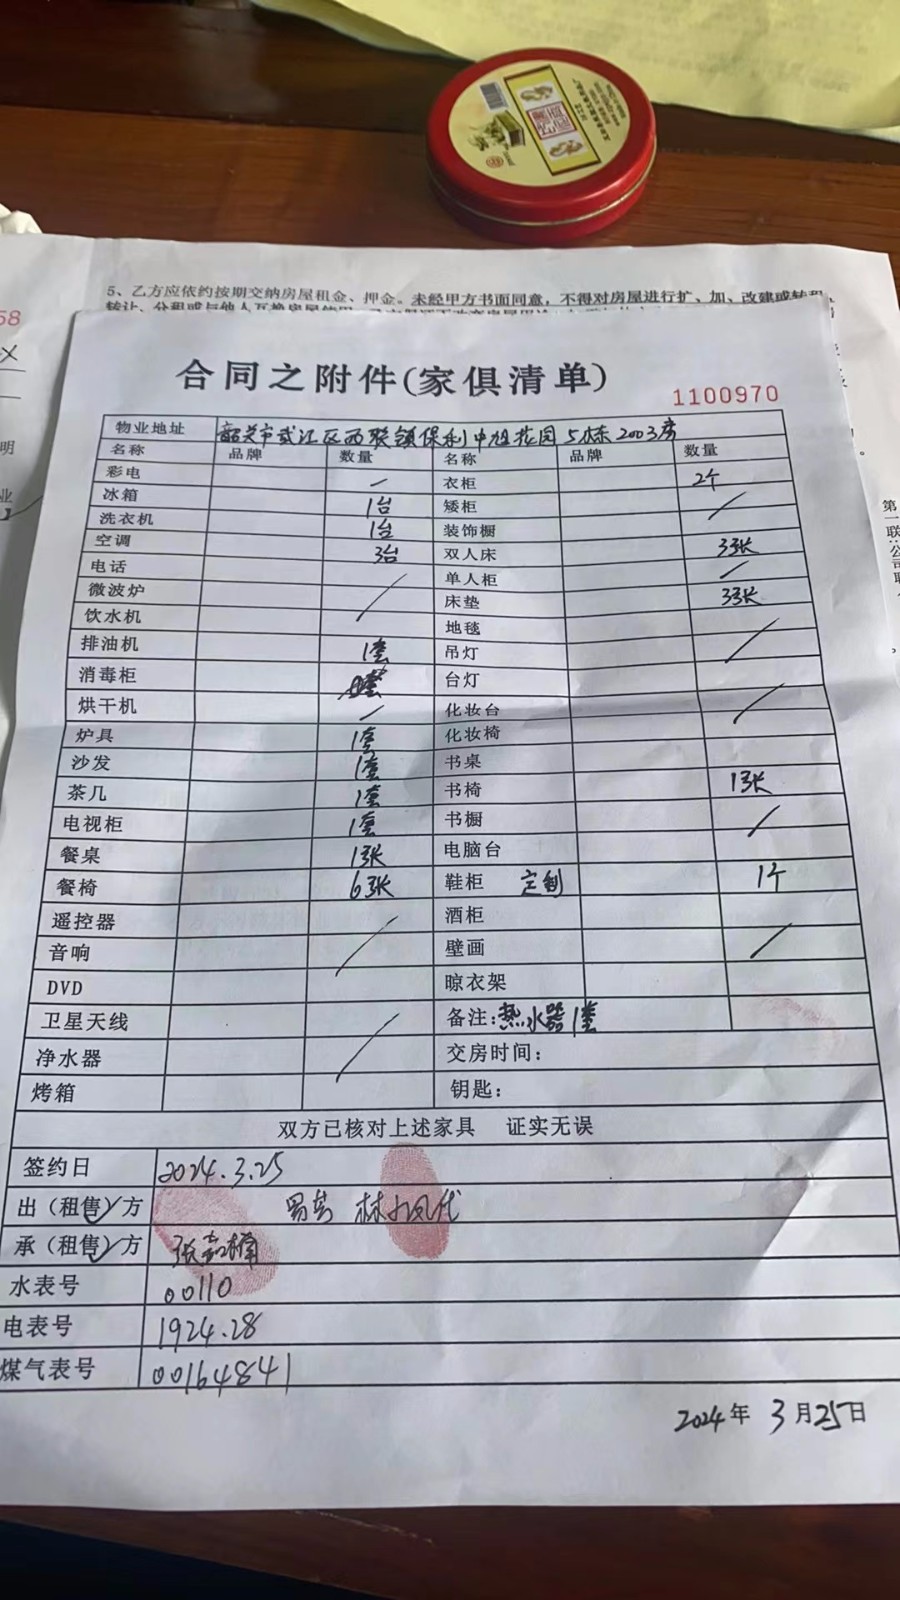 5、乙方应依约按期交纳房屋租金、押金。未经甲方书面同意，不得对房屋进行扩、加、改建或转租、
58
明
业
】
第一联:公司联
合同之附件(家俱清单)
1100970
物业地址 韶关市武江区西联镇保利中旭花园5栋2003房
名称 品牌 数量 名称 品牌 数量
彩电 / 衣柜 2个
冰箱 1台 矮柜 /
洗衣机 1台 装饰橱
空调 3台 双人床 3张
电话 单人柜 /
微波炉 / 床垫 3张
饮水机 地毯
排油机 1套 吊灯 /
消毒柜 台灯
烘干机 / 化妆台 /
炉具 1套 化妆椅
沙发 1套 书桌
茶几 1套 书椅 1张
电视柜 1套 书橱 /
餐桌 1张 电脑台
餐椅 6张 鞋柜 定制 1个
遥控器 酒柜
音响 / 壁画 /
DVD 晾衣架
卫星天线 备注:热水器1套
净水器 / 交房时间:
烤箱 钥匙:
双方已核对上述家具 证实无误
签约日 2024.3.25
出（租售）方
承（租售）方
水表号 00110
电表号 1924.28
煤气表号 00164841
2024年 3月25日